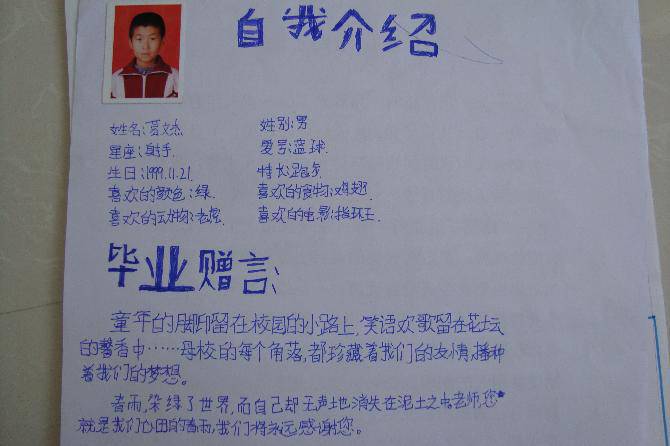 自我介绍
姓名:葛文杰 性别:男
星座:射手 爱好:篮球
生日:1999.11.21. 特长:跑步
喜欢的颜色:绿 喜欢的食物:鸡翅
喜欢的动物:老虎 喜欢的电影:指环王
毕业赠言:
童年的脚印留在校园的小路上,笑语欢歌留在花坛
的馨香中……母校的每个角落,都珍藏着我们的友情,播种
着我们的梦想。
春雨,染绿了世界,而自己却无声地消失在泥土之中老师,您
就是我们心田的春雨,我们将永远感谢您。